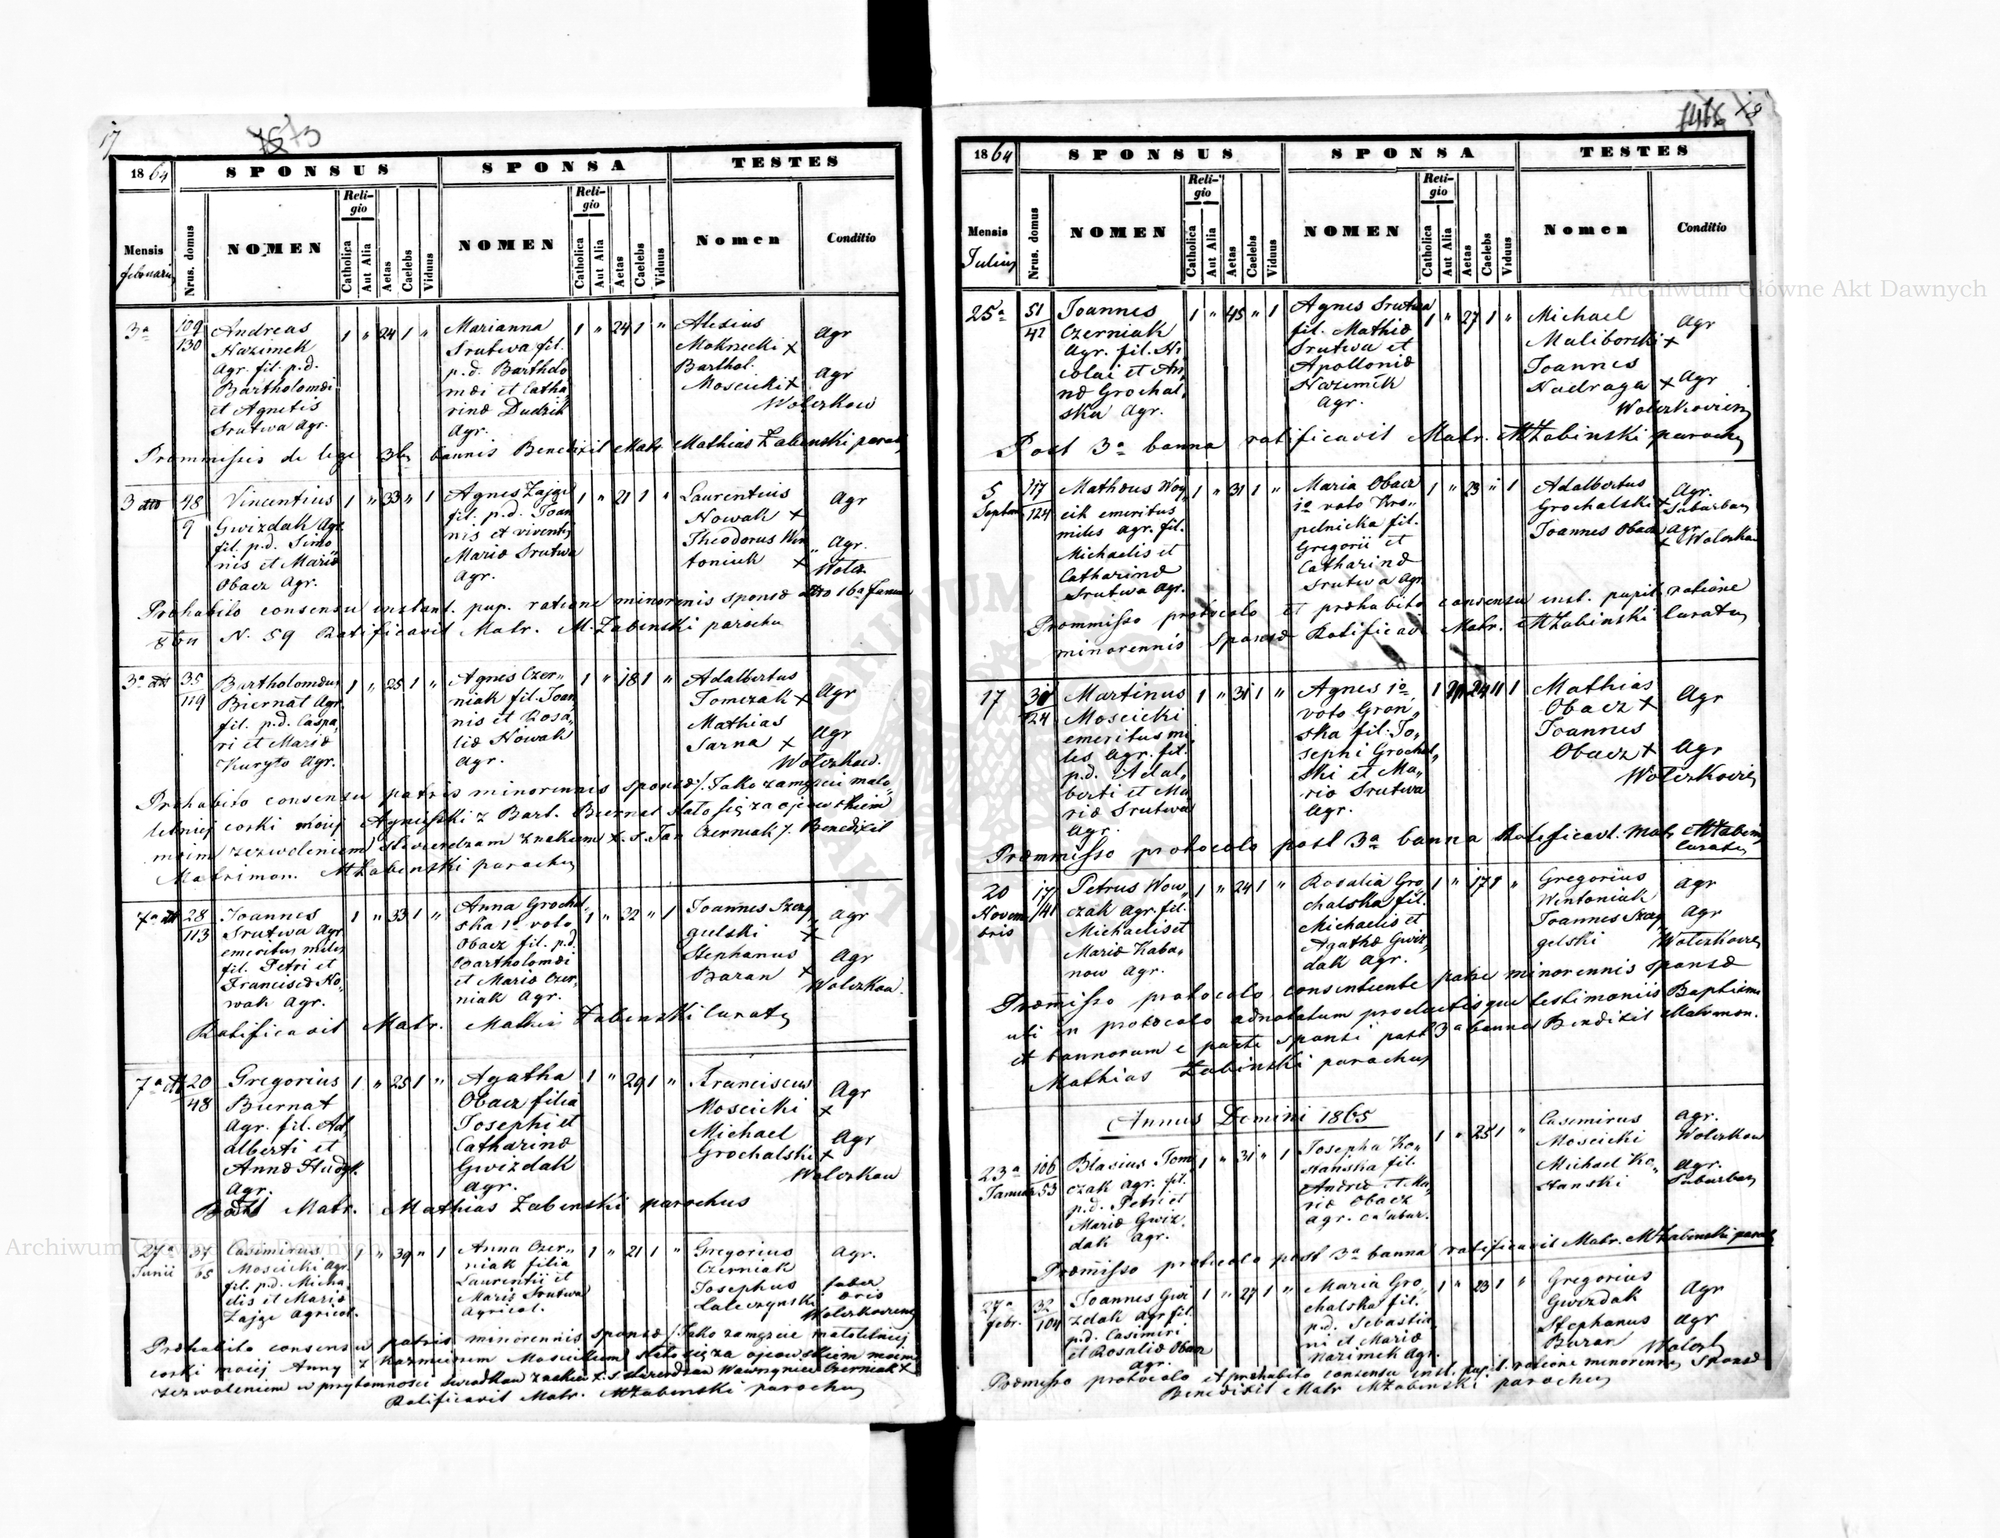 17
1864
SPONSUS
SPONSA
TESTES
Mensis
februarii
Nrus. domus
NOMEN
Reli-
gio
Catholica
Aut Alia
Aetas
Caelebs
Viduus
NOMEN
Reli-
gio
Catholica
Aut Alia
Aetas
Caelebs
Viduus
Nomen
Conditio
3a
109
130
Andreas
Nazimek
Agr. fil. p.d.
Bartholomæi
et Agnetis
Srutwa Agr.
1 " 24 1 "
Marianna
Srutwa fil.
p.d. Bartholo
mæi et Catha
rinæ Dudzik
Agr.
1 " 24 1 "
Alesius
Mokrzecki +
Barthol.
Moscicki +
Agr
Agr
Wolczkow
Præmissis de lege 3bus bannis Benedixit Matr Mathias Zabinski paroch
3 dto
48
9
Vincentius
Gwizdak Agr.
fil. p.d. Simo
nis et Mariæ
Obacz Agr.
1 " 33 " 1
Agnes Zajge
fil. p.d. Joan
nis et viventis
Mariæ Srutwa
Agr.
1 " 21 1 "
Laurentius
Nowak +
Theodorus Win
toniuk +
Agr
Agr.
Wolcz.
Præhabito consensu instant. pup. ratione minorennis sponsæ dto 16a Januar
864 N. 59 Ratificavit Matr. M. Zabinski parochu
3a dto
35
119
Bartholomæus
Biernat Agr.
fil. p.d. Caspa,
ri et Mariæ
Kuryło Agr.
1 " 25 1 "
Agnes Czer,,
niak fil. Joan,
nis et Rosa,
liæ Nowak
Agr.
1 " 18 1 "
Adalbertus
Tomczak +
Mathias
Sarna +
Agr
Agr
Wolczkow.
Præhabito consensu patris minorennis sponsæ /. Jako zamęzcie mało,
letniej corki mojej Agnieszki z Bart. Biernat stało się za ojcowskiem
moim zezwoleniem stwierdzam znakiem +. s. Jan Czerniak /. Benedixit
Matrimon. MZabinski parochus
7a dto
28
113
Joannes
Srutwa Agr
emeritus miles
fil. Petri et
Franciscæ No,
wak Agr.
1 " 33 1 "
Anna Grochal,
ska 1o voto
Obacz fil. p.d.
Bartholomæi
et Mariæ Czer,
niak Agr.
1 " 22 " 1
Joannes Szczy
gielski +
Stephanus
Baran +
Agr
Agr
Wolczkow.
Ratificavit Matr. Mathias Zabinski Curatus
7a dto
20
48
Gregorius
Biernat
Agr. fil. Ad
alberti et
Annæ Hudyk
Agr.
1 " 25 1 "
Agatha
Obacz filia
Josephi et
Catharinæ
Gwizdak
Agr.
1 " 29 1 "
Franciscus
Moscicki +
Michael
Grochalski +
Agr
Agr
Wolczkow
Bdxt Matr. Mathias Zabinski parochus
27a
Junii
37
65
Casimirus
Moscicki Agr
fil. p.d. Micha
elis et Mariæ
Zajge Agricol.
1 " 39 " 1
Anna Czer,,
niak filia
Laurentii et
Mariæ Srutwa
Agricol.
1 " 21 1 "
Gregorius
Czerniak
Josephus
Agr.
faber
Wolczkoviens
Præhabito consensu patris minorennis sponsæ /. Jako zamęzcie małoletniej
corki mojej Anny z Kazmierzem Moscickiem stało się za ojcowskiem moim
zezwoleniem w przytomności swiadkow znakiem +. s. stwierdzam Wawrzyniec Czerniak +
Ratificavit Matr. MZabinski parochus
18
1864
SPONSUS
SPONSA
TESTES
Mensis
Julius
Nrus. domus
NOMEN
Reli-
gio
Catholica
Aut Alia
Aetas
Caelebs
Viduus
NOMEN
Reli-
gio
Catholica
Aut Alia
Aetas
Caelebs
Viduus
Nomen
Conditio
25a
51
42
Joannes
Czerniak
Agr. fil. Ni
colai et An
næ Grochal,
ska Agr.
1 " 45 " 1
Agnes Srutwa
fil. Mathiæ
Srutwa et
Apolloniæ
Nazimek
Agr.
1 " 27 1 "
Michael
Maliborski +
Joannes
Nadraga +
Agr
Agr
Wolczkoviens
Post 3a banna ratificavit Matr. MZabinski parochus
5
Septem
117
124
Mathæus Woy
cik emeritus
miles Agr. fil.
Michaelis et
Catharinæ
Srutwa Agr.
1 " 31 1 "
Maria Obacz
1o voto Kro,
pelnicka fil.
Gregorii et
Catharinæ
Srutwa Agr
1 " 23 " 1
Adalbertus
Grochalski +
Joannes Obacz +
Agr.
Suburban
Agr
Wolczkow
Præmmisso protocolo et præhabito consensu inst. pupil. ratione
minorennis sponsæ Ratificav Matr. MZabinski Curatus
17
24
Martinus
Moscicki
emeritus mi
les Agr. fil.
p.d. Adal,
berti et Ma
riæ Srutwa
Agr.
1 " 31 1 "
Agnes 1o
voto Gron,
ska fil. Jo,
sephi Grochal,
ski et Ma,
riæ Srutwa
Agr.
1 " 24 " 1
Mathias
Obacz +
Joannes
Obacz +
Agr
Agr
Wolczkoviens
Præmmisso protocolo post 3a banna Ratificavt. Matr MZabins
Curatus
20
Novem
bris
17
141
Petrus Wow
czak Agr. fil.
Michaelis et
Mariæ Kaba,
now Agr.
1 " 24 1 "
Rosalia Gro
chalska fil.
Michaelis et
Agathæ Gwiz,
dak Agr.
1 " 17 1 "
Gregorius
Wintoniak
Joannes Szczy
gelski
Agr
Agr
Wolczkoviens
Præmisso protocolo consentiente patre minorennis sponsæ
uti in protocolo adnotatum productisque testimoniis Baptismi
et bannorum e parte sponsi post 3a banna Benedixit Matrimon.
Mathias Zabinski parochus
Annus Domini 1865
23a
Januar
106
53
Blasius Tom
czak Agr. fil.
p.d. Petri et
Mariæ Gwiz,
dak Agr.
1 " 31 " 1
Josepha Ko,
stanska fil.
Andreæ et Ma,
riæ Obacz
Agr. Subur.
1 " 25 1 "
Casimirus
Moscicki
Michael Ko,
stanski
Agr.
Wolczkow
Agr.
Suburban
Præmisso protocolo post 3a banna ratificavit Matr. MZabinski paroch
27a
febr.
32
104
Joannes Gwi
zdak Agr fil.
p.d. Casimiri
et Rosaliæ Obacz
Agr.
1 " 27 1 "
Maria Gro,
chalska fil.
p.d. Sebastia,
ni et Mariæ
Nazimek Agr.
1 " 23 1 "
Gregorius
Gwizdak
Stephanus
Baran
Agr
Agr
Wolcz
Præmisso protocolo et præhabito consensu inst. pupil. ratione minorennis sponsæ
Benedixit Matr MZabinski parochus
Archiwum Główne Akt Dawnych
Archiwum Główne Akt Dawnych